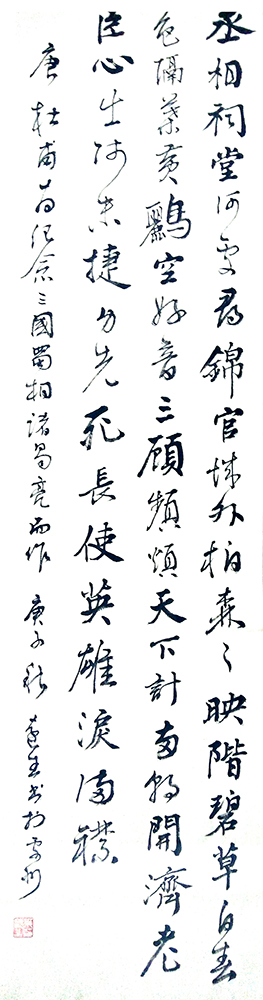 丞相祠堂何處尋錦官城外柏森々映階碧草自春
色隔葉黃鸝空好音三顧頻煩天下計兩朝開濟老
臣心出師未捷身先死長使英雄淚滿襟
唐杜甫為紀念三國蜀相諸葛亮而作 庚子秋 生书於州